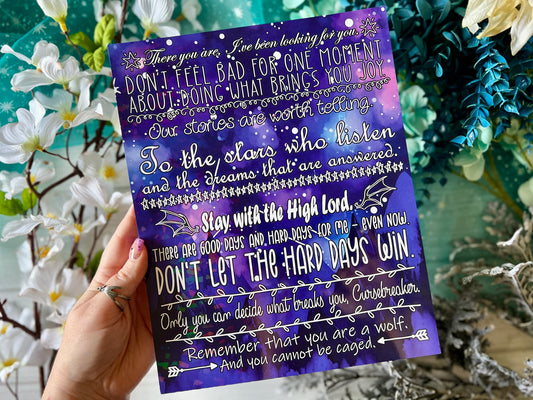 There you are. I've been looking for you.
DON'T FEEL BAD FOR ONE MOMENT
ABOUT DOING WHAT BRINGS YOU JOY.
Our stories are worth telling.
To the stars who listen
and the dreams that are answered.
Stay with the High Lord.
THERE ARE GOOD DAYS AND HARD DAYS FOR ME - EVEN NOW.
DON'T LET THE HARD DAYS WIN.
Only you can decide what breaks you, Cursebreaker.
Remember that you are a wolf.
And you cannot be caged.